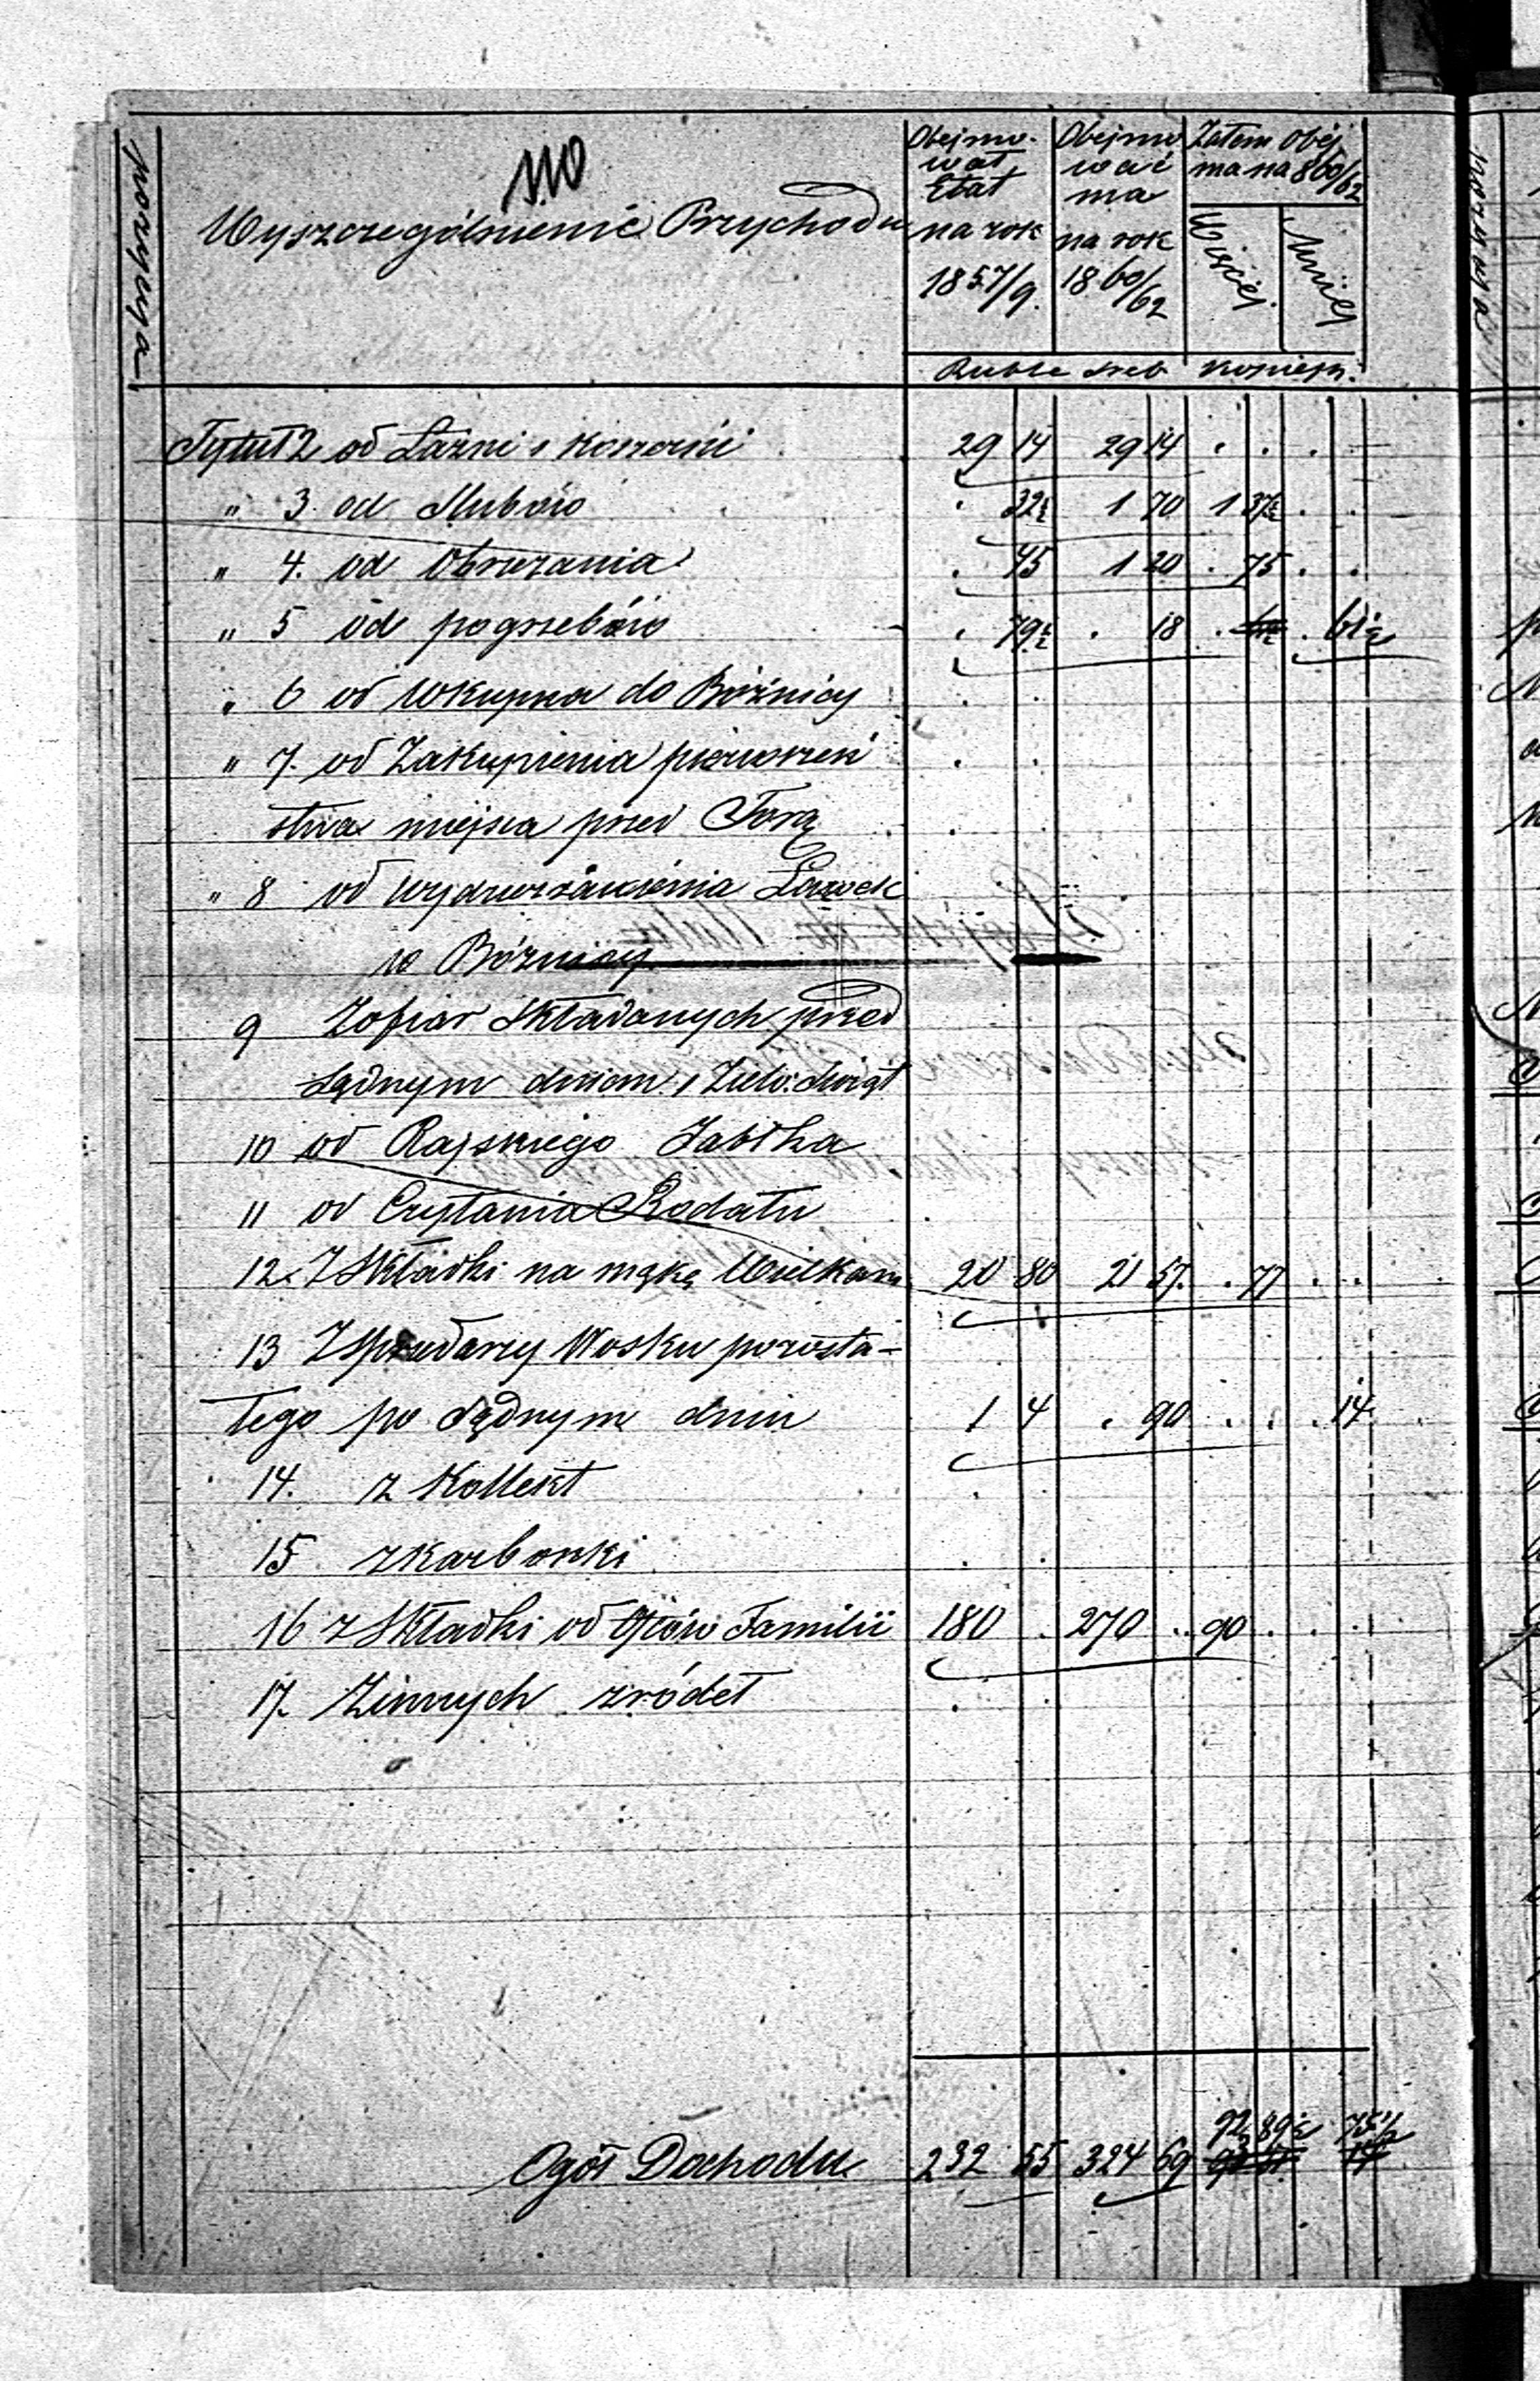 110
pozycya
Wyszczególnienie Przychodu
Obejmo-
wał
Etat
na rok
1857/9.
Obejmo
wać
ma
na rok
1860/62
Zatem obej
ma na 860/62
Więcej
Mniej
Ruble sreb kopiejki
Tytuł 2 od Łaźni i Koszerki 29 14 29 14 . . . .
" 3. od Ślubów . 32½ 1 70 1 37½ . .
" 4. od Obrzezania . 45 1 20 . 75 . .
" 5 od pogrzebów . 79½ . 18 . 61½ . 61½
" 6 od Wkupna do Bóżnicy . .
" 7. od Zakupienia pierwszeń . .
stwa miejsca przed Torą .
" 8 od wydzierżawienia Ławek
w Bóżnicy
9 Z ofiar składanych przed
sądnym dniem i Zielo: Świąt
10 od Rajskiego Jabłka
11 od Czytania Rodału .
12. Z Składki na mąkę Wielkan 20 80 21 57. . 77 . . .
13 Z Sprzedaży Wosku pozosta-
łego po Sądnym dniu 1 4 . 90 . . . 14
14. z Kollekt .
15 z Karbonki . .
16 z Składki od Ojców Familii 180 . 270 . . 90 . . . .
17. Z innych zródeł .
92 89½ 75½
Ogół Dochodu 232 55 324 69